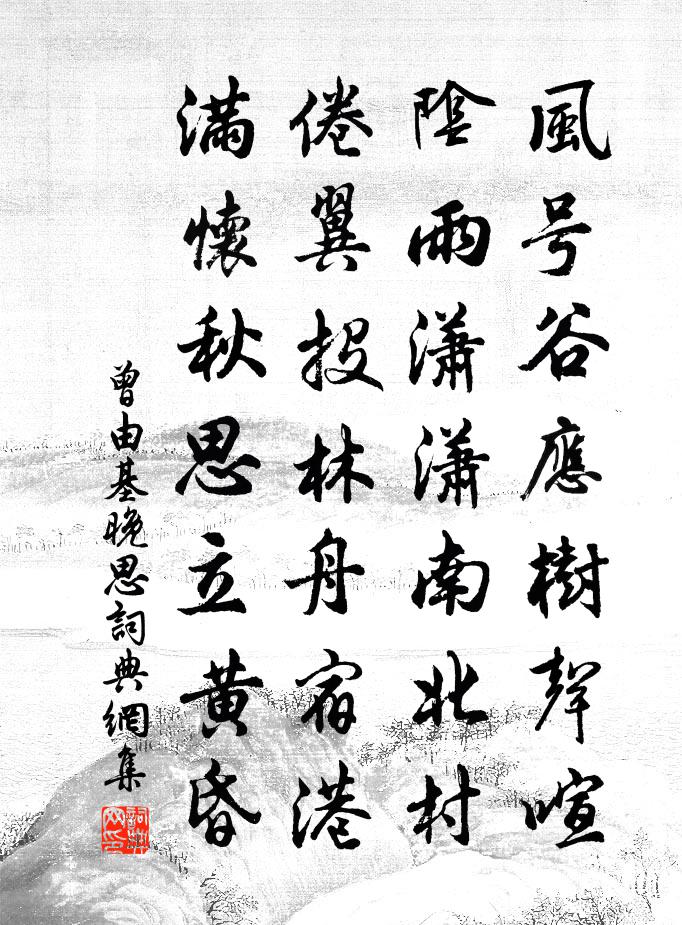 風号谷應樹聲喧
陰雨瀟瀟南北村
倦翼投林舟宿港
滿懷秋思立黄昏
曾由基晚思詞典網集